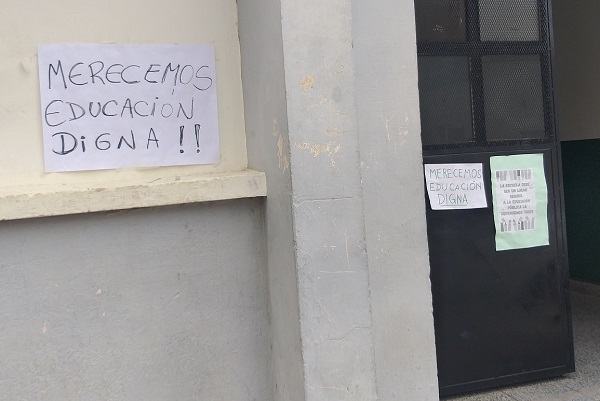 MERECEMOS
EDUCACIÓN
DIGNA !!
MERECEMOS
EDUCACIÓN
DIGNA
LA ESCUELA DEBE
SER UN LUGAR
SEGURO.
A LA EDUCACIÓN
PÚBLICA LA
DEFENDEMOS TODES